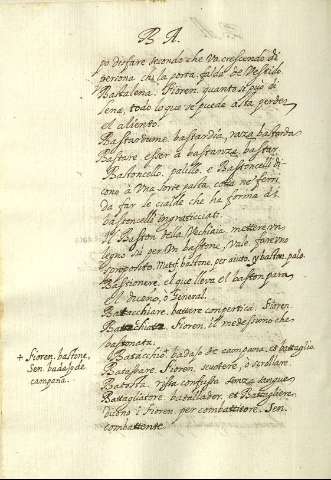 B A.
po disfare secondo che va crescendo di
persona chi la porta. falda de vestido.
Bastalena, Fioren. quanto si può di
lena, todo lo que se puede asta perder
el aliento.
Bastardume, bastardia, raza bastarda
Bastare, esser à bastanza, bastar.
Bastoncello, palillo, e Bastoncelli di
cono à una sorte pasta, cotta ne' ferri
da far le cialde che ha forma di
bastoncelli ingraticciati.
Il Baston della Vechiaia, mettere un
legno su per un bastone, Vale, fare uno
sproposito. Metaf. bastone, per aiuto, y baston, palo.
Bastionere, el que lleva el baston para
el, o General.
Batacchiare, battere con pertica. Fioren.
Batacchiata, Fioren. il medesimo che
bastonata.
Batacchio, badajo de campana, et battaglio
+ Fioren. bastone,
Sen. badajo de
campana.
Fioren. scuotere, o
Batosta, rissa confusa senza sangue
Battagliatore, batallador, et Battagliere
dicono i Fioren. per combattitore. Sen.
combattente.